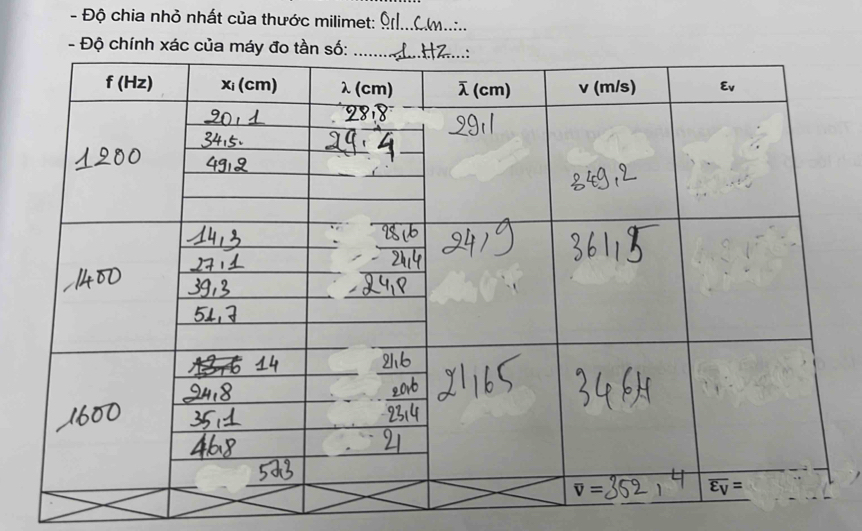 - Độ chia nhỏ nhất của thước milimet: 0,1...cm.....
- Độ chính xác của máy đo tần số: ..........1..HZ....:
f (Hz) xᵢ (cm) λ (cm) λ̄ (cm) v (m/s) εᵥ
1200 20,1 28,8 29,1 349,2
34,5. 29,4
49,2
1400 14,3 25,6 24,9 361,5
27,1 24,4
39,3 24,8
51,7
1600 14 21,6 21,65 346,4
24,8 20,6
35,1 23,4
46,8 21
57,3
v̄ = 352,4 ε̄ᵥ =